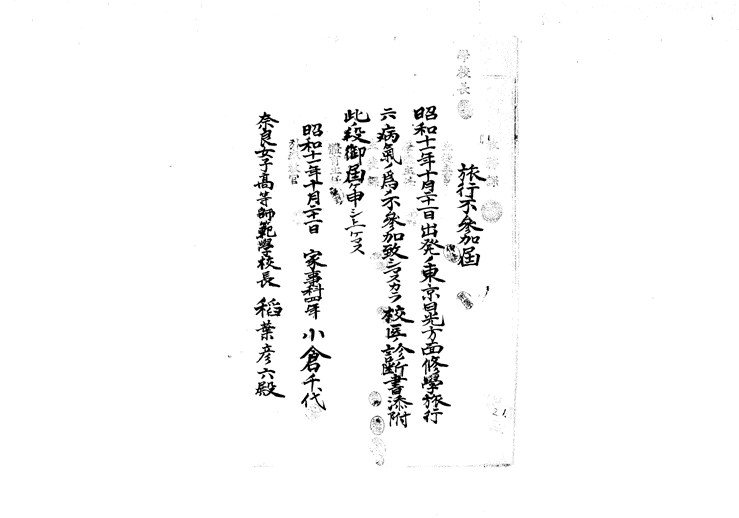 學校長
旅行不參加屆
昭和十一年十月二十一日出発ノ東京日光方面修學旅行
ニ病氣ノ爲メ不參加致シマスカラ校医ノ診断書添附
此段御屆ケ申シ上ゲマス
昭和十一年十月二十一日 家事科四年 小倉千代
奈良女子高等師範學校長 稲葉彦六殿